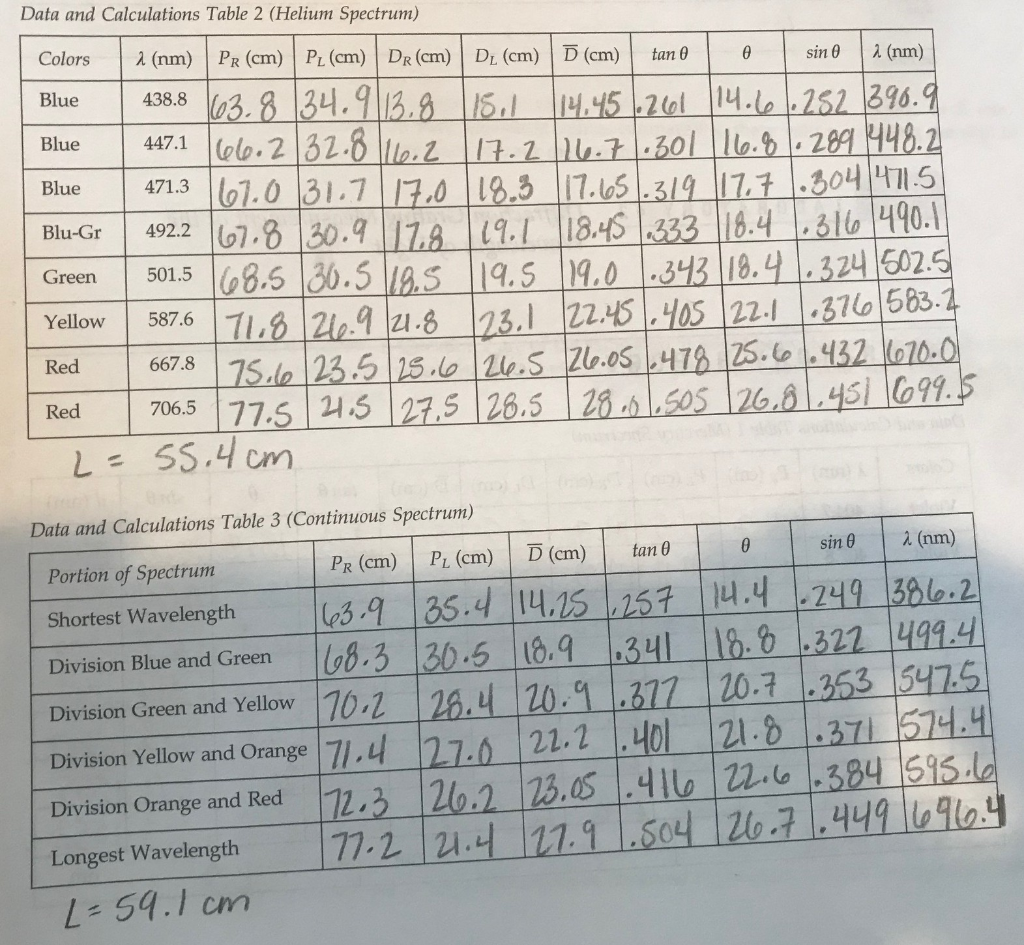 Data and Calculations Table 2 (Helium Spectrum)
Colors λ (nm) PR (cm) PL (cm) DR (cm) DL (cm) D̅ (cm) tan θ θ sin θ λ (nm)
Blue 438.8 63.8 34.9 13.8 15.1 14.45 .261 14.6 .252 390.9
Blue 447.1 66.2 32.8 16.2 17.2 16.7 .301 16.8 .289 448.2
Blue 471.3 67.0 31.7 17.0 18.3 17.65 .319 17.7 .304 471.5
Blu-Gr 492.2 67.8 30.9 17.8 19.1 18.45 .333 18.4 .316 490.1
Green 501.5 68.5 30.5 18.5 19.5 19.0 .343 18.4 .324 502.5
Yellow 587.6 71.8 26.9 21.8 23.1 22.45 .405 22.1 .376 583.2
Red 667.8 75.6 23.5 25.6 26.5 26.05 .478 25.6 .432 670.0
Red 706.5 77.5 21.5 27.5 28.5 28.0 .505 26.8 .451 699.5
L = 55.4 cm
Data and Calculations Table 3 (Continuous Spectrum)
Portion of Spectrum PR (cm) PL (cm) D̅ (cm) tan θ θ sin θ λ (nm)
Shortest Wavelength 63.9 35.4 14.25 .257 14.4 .249 386.2
Division Blue and Green 68.3 30.5 18.9 .341 18.8 .322 499.4
Division Green and Yellow 70.2 28.4 20.9 .377 20.7 .353 547.5
Division Yellow and Orange 71.4 27.0 22.2 .401 21.8 .371 574.4
Division Orange and Red 72.3 26.2 23.05 .416 22.6 .384 595.6
Longest Wavelength 77.2 21.4 27.9 .504 26.7 .449 696.4
L = 59.1 cm